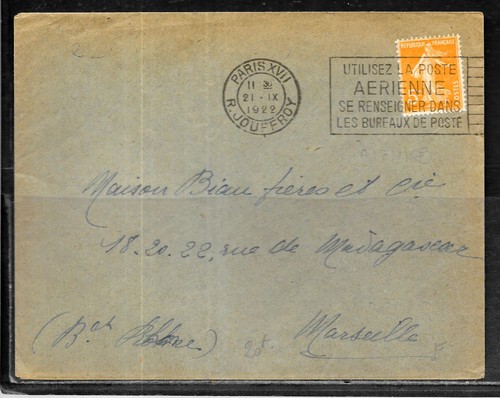 PARIS XVII
11 30
21 - IX
1922
R. JOUFFROY
UTILISEZ LA POSTE
AERIENNE
SE RENSEIGNER DANS
LES BUREAUX DE POSTE
REPUBLIQUE FRANÇAISE
POSTES
Maison Biau frères et Cie
18.20.22, rue de Madagascar
Marseille
(Bches Rhône)
20f